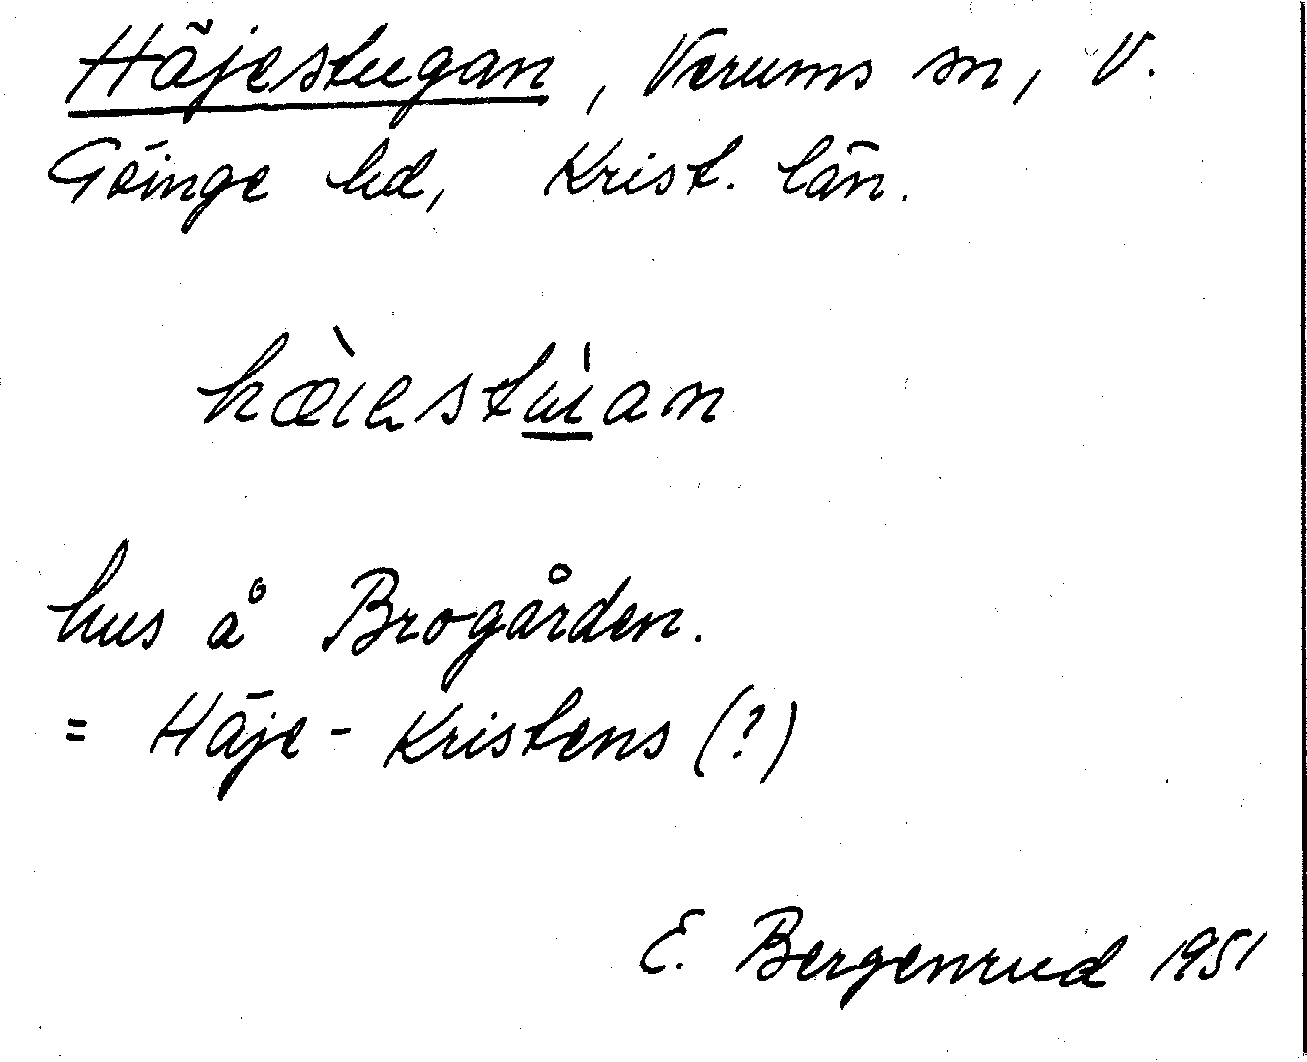 Häjestugan, Verums sn, V.
Göinge hd, Krist. län.
hus å Brogården.
= Häje-Kristens (?)
E. Bergenrud 1951